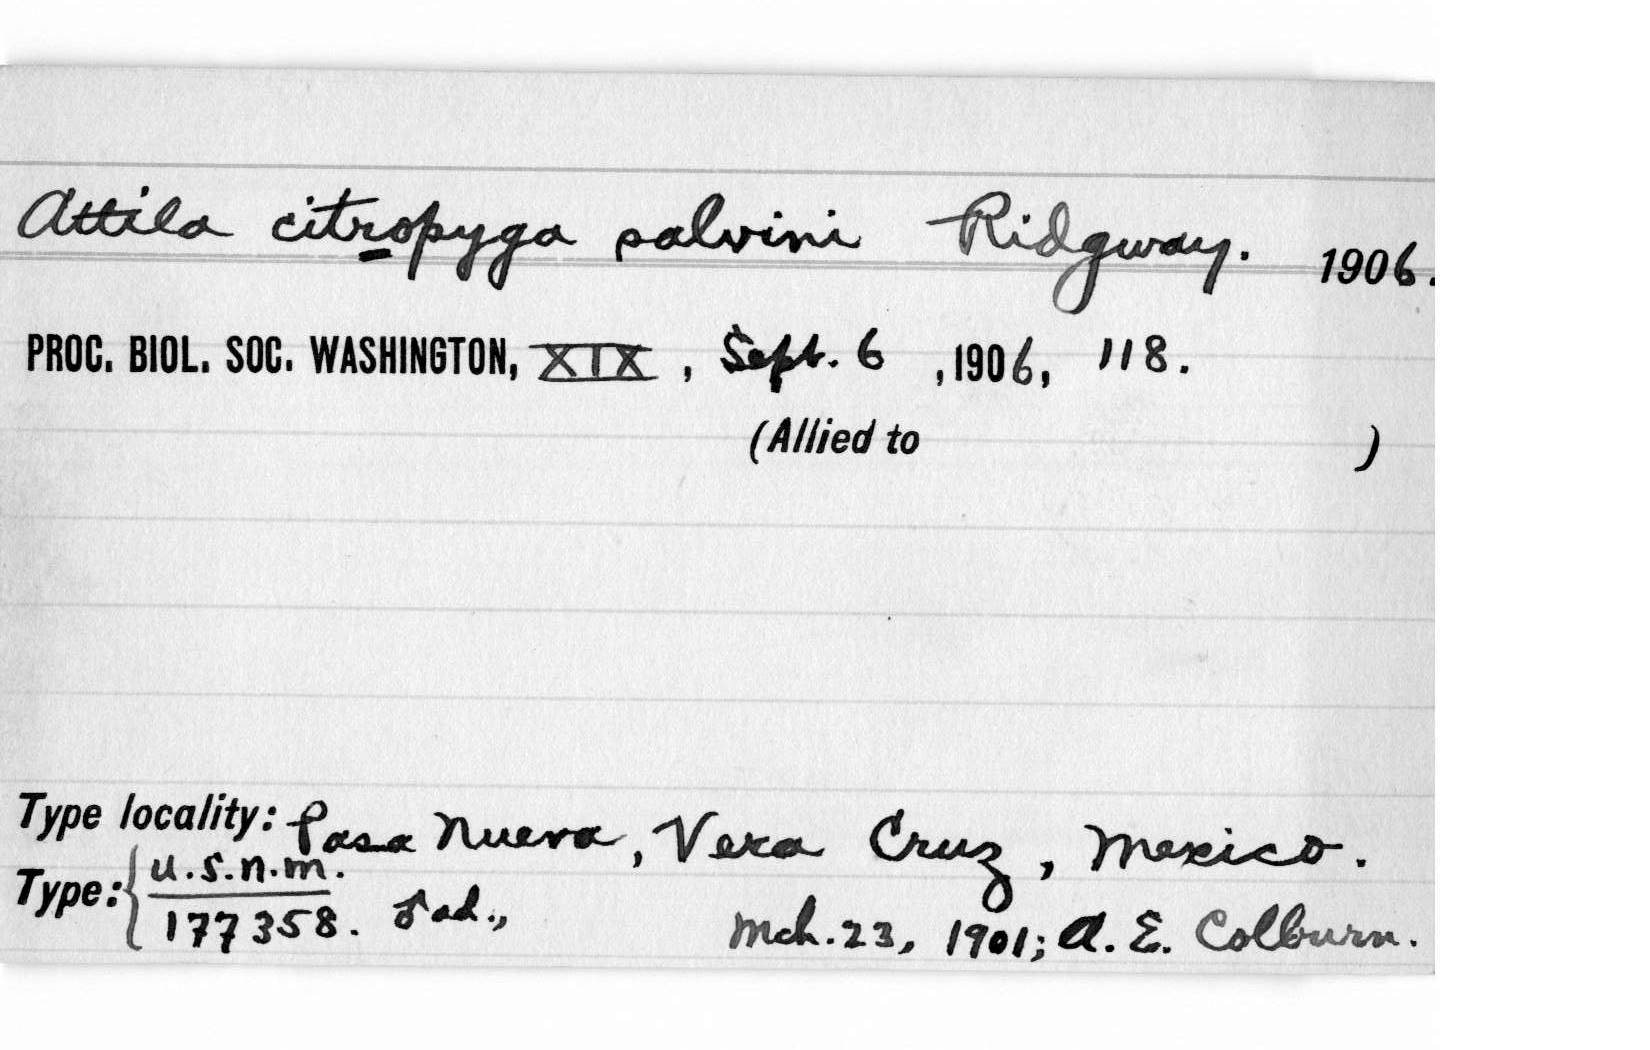 Attila citropyga salvini Ridgway. 1906.
PROC. BIOL. SOC. WASHINGTON, XIX, Sept. 6, 1906, 118.
(Allied to )
Type locality: Pasa Nueva, Vera Cruz, Mexico.
Type: { U.S.N.M.
177358. ♂ ad., Mch. 23, 1901; A. E. Colburn.